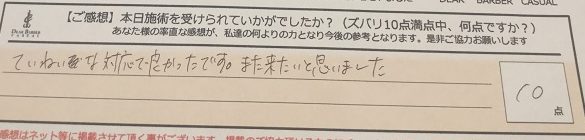 DEAR BARBER CASUAL
DEAR BARBER
【ご感想】本日施術を受けられていかがでしたか？（ズバリ10点満点中、何点ですか？）
あなた様の率直な感想が、私達の何よりの力となり今後の参考となります。是非ご協力お願いします
ていねいな対応で良かったです。また来たいと思いました
10
点
感想はネット等に掲載させて頂く事がございます。